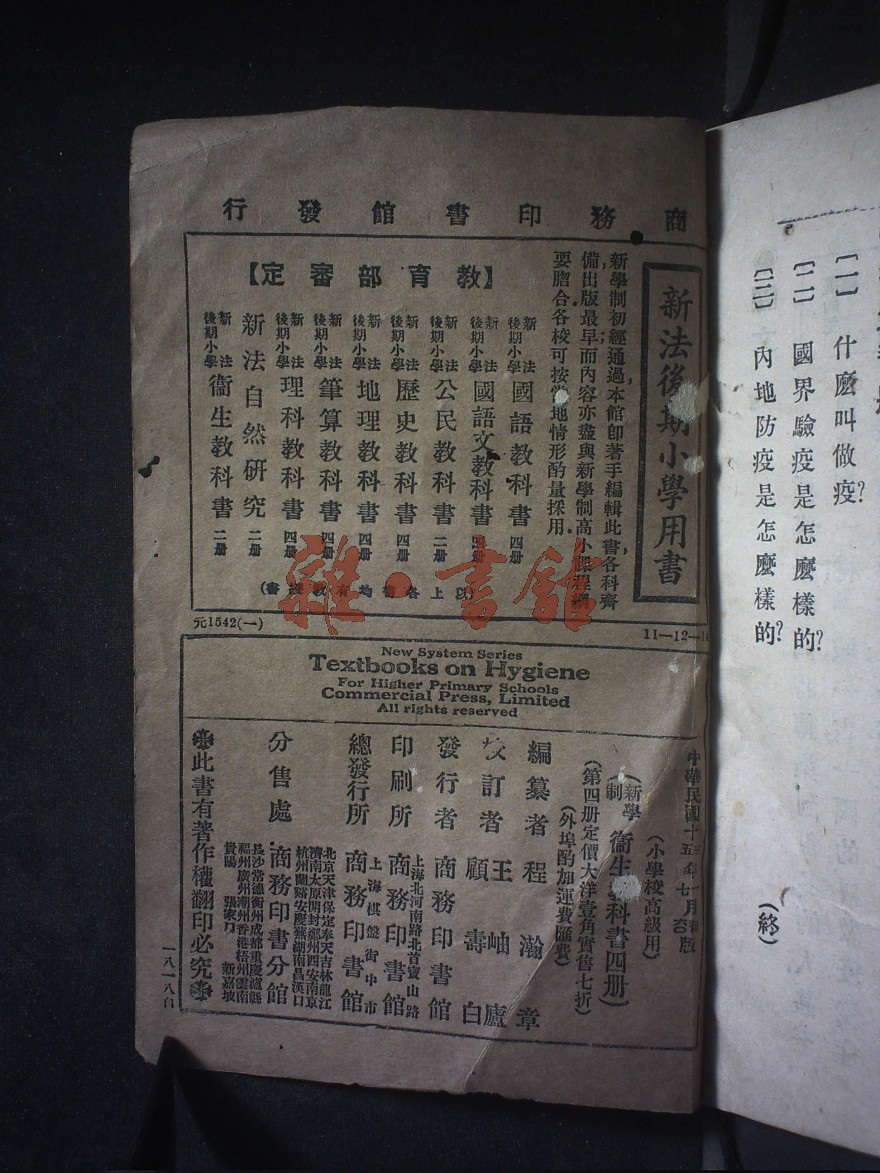 〔一〕 什麼叫做疫?
〔二〕 國界驗疫是怎麼樣的?
〔三〕 內地防疫是怎麼樣的?
(終)
商務印書館發行
新法後期小學用書
新學制初經通過,本館卽著手編輯此書,各科齊
備出版最早而內容亦盡與新學制高小課程綱
要脗合各校可按當地情形酌量採用.
【教育部審定】
新法後期小學 國語教科書 四册
新法後期小學 國語文教科書 四册
新法後期小學 公民教科書 二册
新法後期小學 歷史教科書 四册
新法後期小學 地理教科書 四册
新法後期小學 筆算教科書 四册
新法後期小學 理科教科書 四册
新法自然研究 二册
新法後期小學 衞生教科書 二册
(以上各書均有教授書)
元1542(一)
11—12—1
New System Series
Textbooks on Hygiene
For Higher Primary Schools
Commercial Press, Limited
All rights reserved
中華民國十年七月版
(小學校高級用)
(新學制)衞生教科書四册)
(第四册定價大洋壹角實售七折)
(外埠酌加運費匯費)
編纂者 程瀚章
校訂者 王岫廬 顧壽白
發行者 商務印書館
印刷所 上海北河南路北首寶山路 商務印書館
總發行所 上海棋盤街中市 商務印書館
分售處 商務印書分館
北京天津保定奉天吉林龍江
濟南太原開封鄭州西安南京
杭州蘭谿安慶蕪湖南昌漢口
長沙常德衡州成都重慶瀘縣
福州廣州潮州香港梧州雲南
貴陽 張家口 新嘉坡
此書有著作權翻印必究
一八一八自
雜·書館